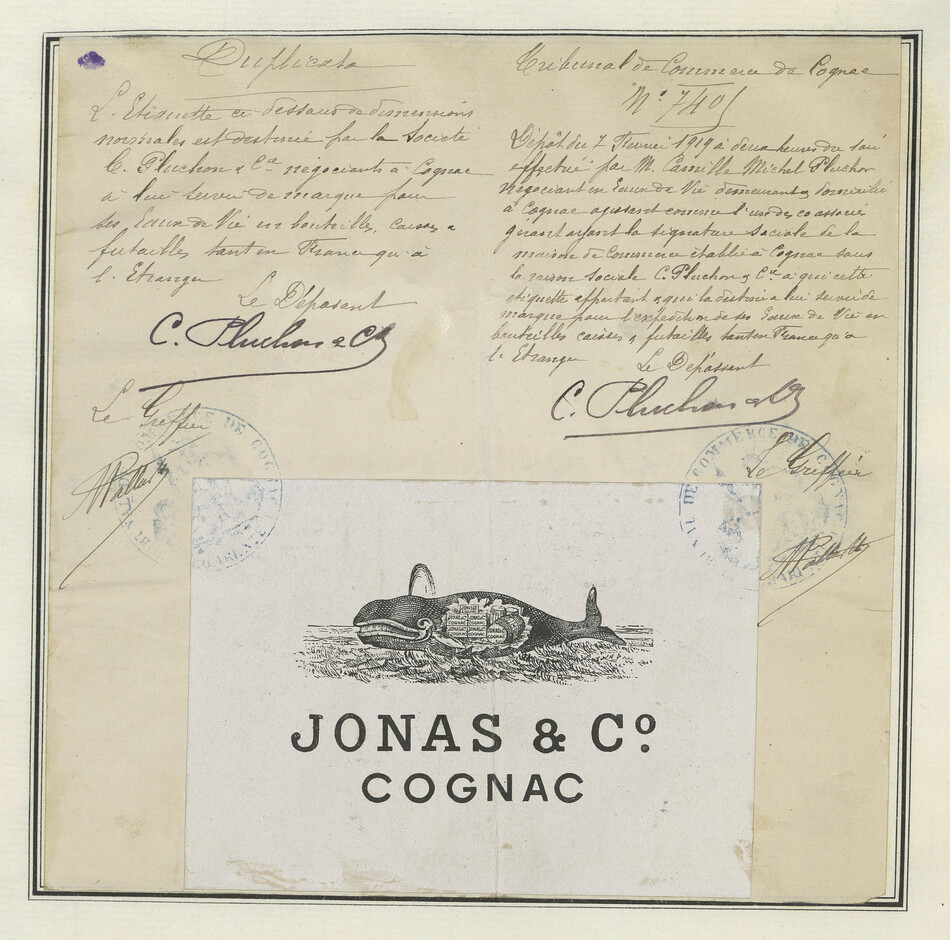 Duplicata
L'Etiquette ci dessous de dimensions
normales est destinée par la Société
C. Pluchon & Cie négociants à Cognac
à lui servir de marque pour
ses Eaux de Vie en bouteilles, caisses &
futailles tant en France qu'à
l'Etranger
Le Déposant
C. Pluchon & Co
Le Greffier
Tribunal de Commerce de Cognac
No 7405
Dépôt du 7 Février 1919 à deux heures du soir
effectué par M. Camille Michel Pluchon
négociant en Eaux de Vie demeurant & domicilié
à Cognac agissant comme l'un des co associés
gérant ayant la signature sociale de la
maison de Commerce établie à Cognac sous
la raison sociale C. Pluchon & Cie à qui cette
étiquette appartient & qui la destine à lui servir de
marque pour l'expédition de ses Eaux de Vie en
bouteilles caisses & futailles tant en France qu'à
l'Etranger
Le Déposant
C. Pluchon & Co
Le Greffier
COMMERCE DE COGNAC
JONAS & Co
COGNAC